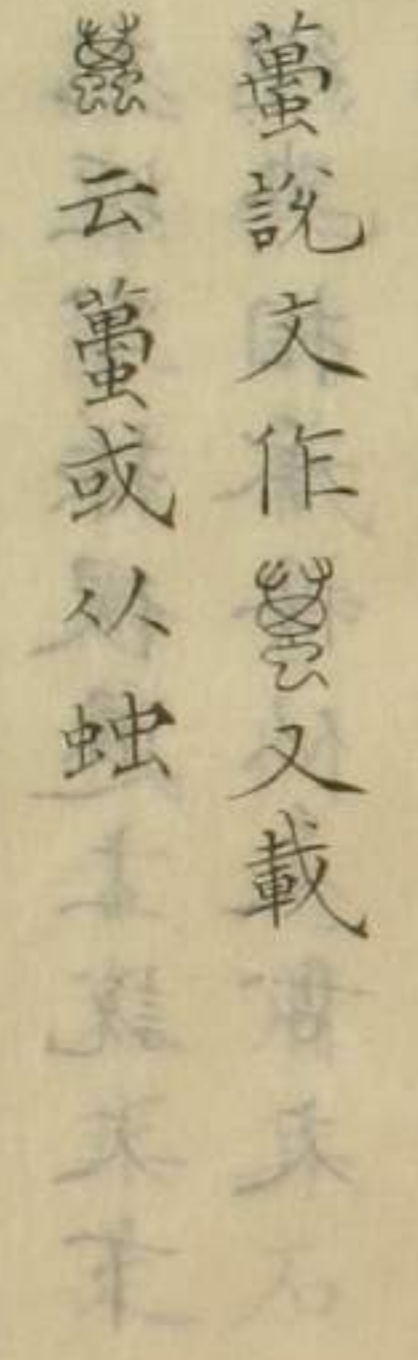 蠆說文作又載
云蠆或从䖵